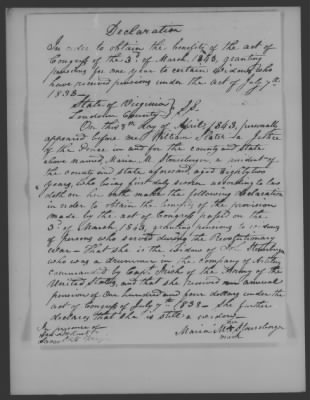 Declaration
In order to obtain the benefits of the act of
Congress of the 3d of March 1843, granting
pensions for one year to certain widows who
have received pensions under the act of July 7th
1838
State of Virginia
Loudoun County } SS.
On this 8th day of April 1843, personally
appeared before me William Slater a Justice
of the Peace in and for the county and State
above named, Maria M. Stoneburner, a resident of
the county and State aforesaid, aged Eighty two
years, who being first duly sworn according to law
doth on her oath make the following declaration
in order to obtain the benefits of the provision
made by the act of Congress passed on the
3d of March, 1843, granting pensions to widows
of persons who served during the Revolutionary
War. That she is the widow of
who was a drummer in the company of Artillery
commanded by Capt. of the Army of the
United States, and that she received an annual
pension of one hundred and four dollars under the
act of Congress of July 7th 1838. She further
declares that she is still a widow.
In presence of
Maria M. her X Stoneburner
mark